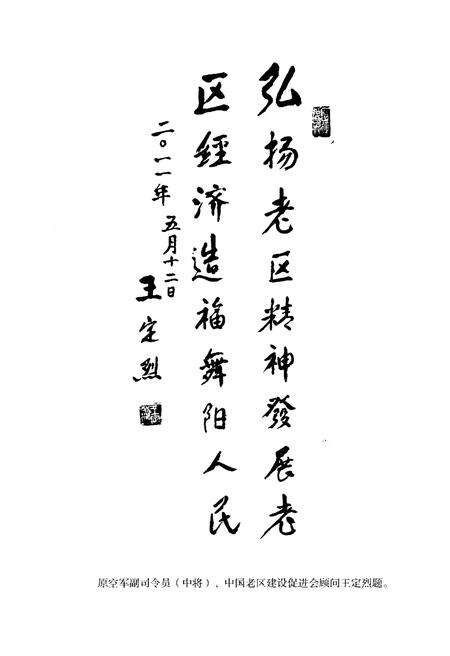 弘扬老区精神發展老
区經济造福舞阳人民
二〇一一年五月十二日
王定烈
原空军副司令员（中将）、中国老区建设促进会顾问王定烈题。